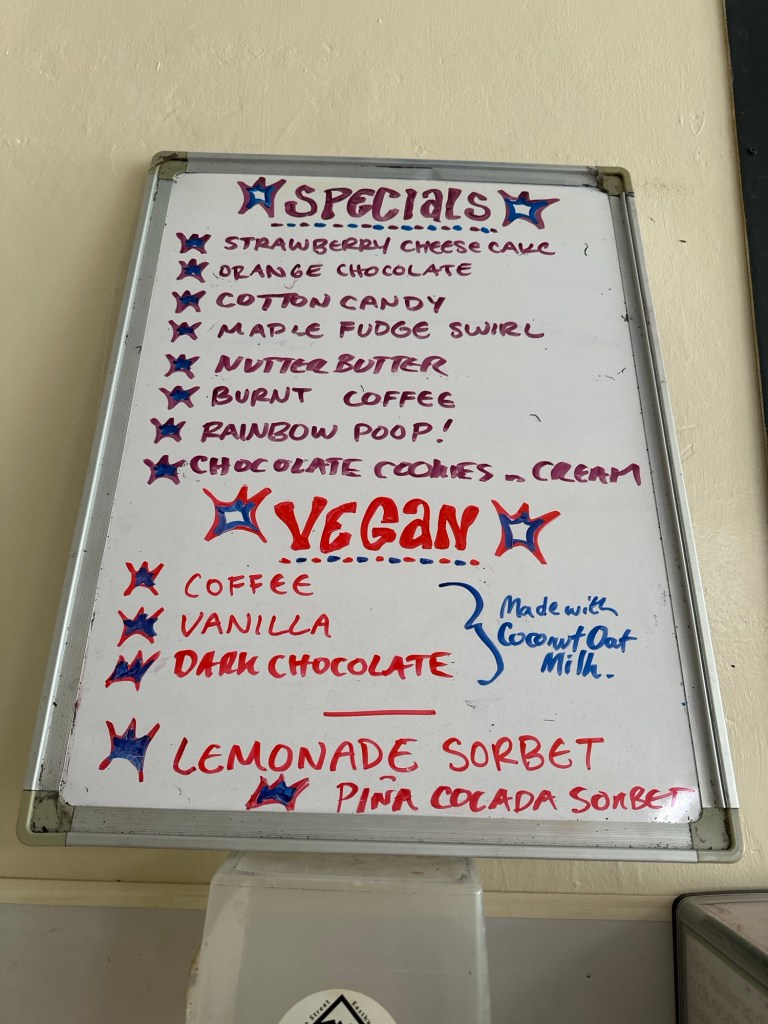 SPECIALS
STRAWBERRY CHEESE CAKE
ORANGE CHOCOLATE
COTTON CANDY
MAPLE FUDGE SWIRL
NUTTER BUTTER
BURNT COFFEE
RAINBOW POOP!
CHOCOLATE COOKIES n CREAM
VEGAN
COFFEE
VANILLA
DARK CHOCOLATE
Made with
Coconut Oat
Milk.
LEMONADE SORBET
PIÑA COLADA SORBET
Street